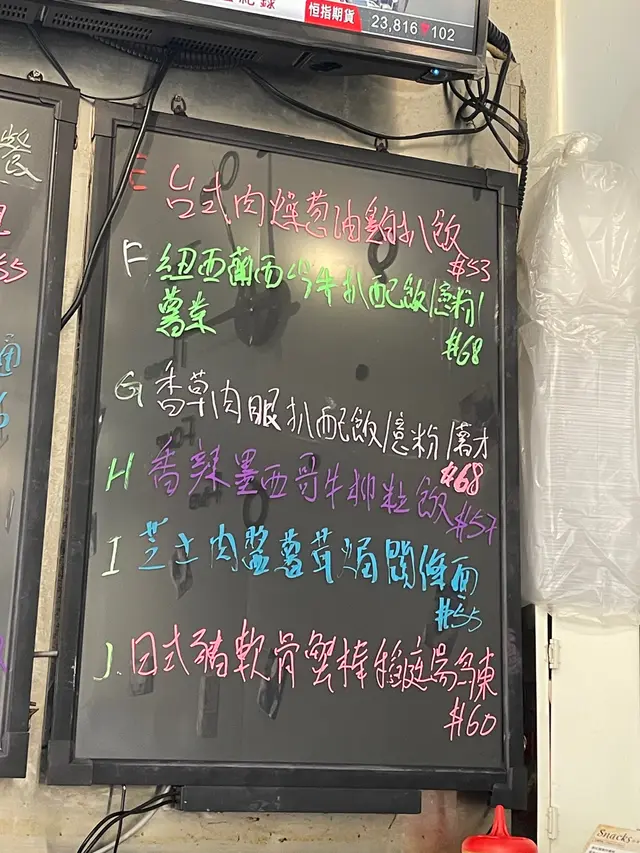 恒指期貨
23,816 102
餐
55
E 台式肉燥葱油雞扒飯
$53
F. 紐西蘭西冷牛扒配飯/意粉/
薯菜
$68
G 香草肉眼扒配飯/意粉/薯才
$68
H 香辣墨西哥牛柳粒飯 $57
I 芝士肉醬薯茸焗闊條面
$55
J. 日式豬軟骨蟹棒稻庭烏冬
$60
Snacks